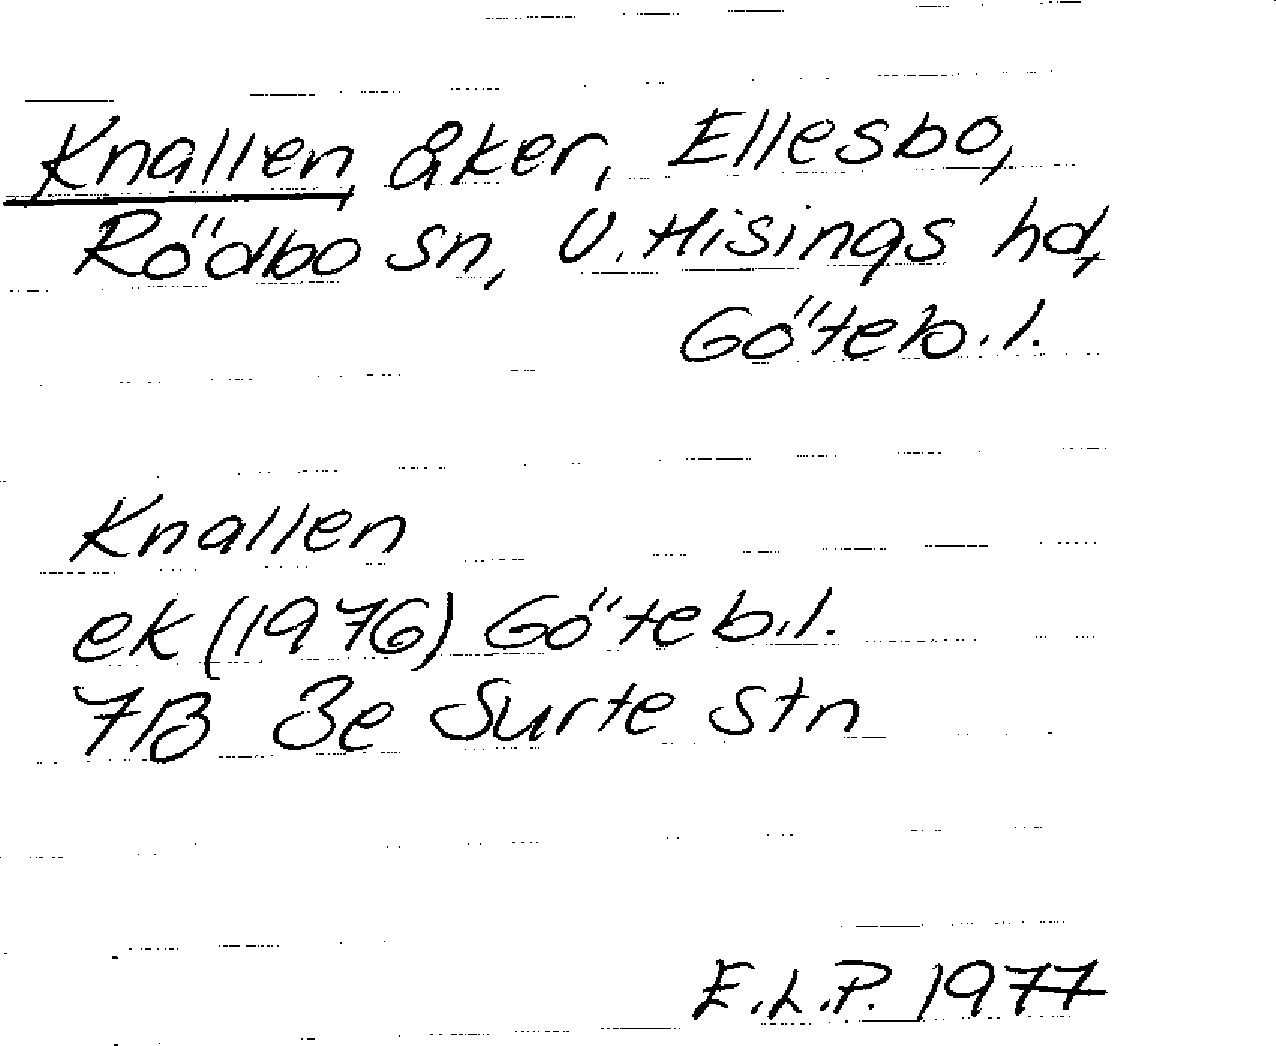 Knallen, åker, Ellesbo,
Rödbo sn, V. Hisings hd,
Göteb.l.
Knallen
ek (1976) Göteb.l.
7B 3e Surte stn
E.L.P. 1977